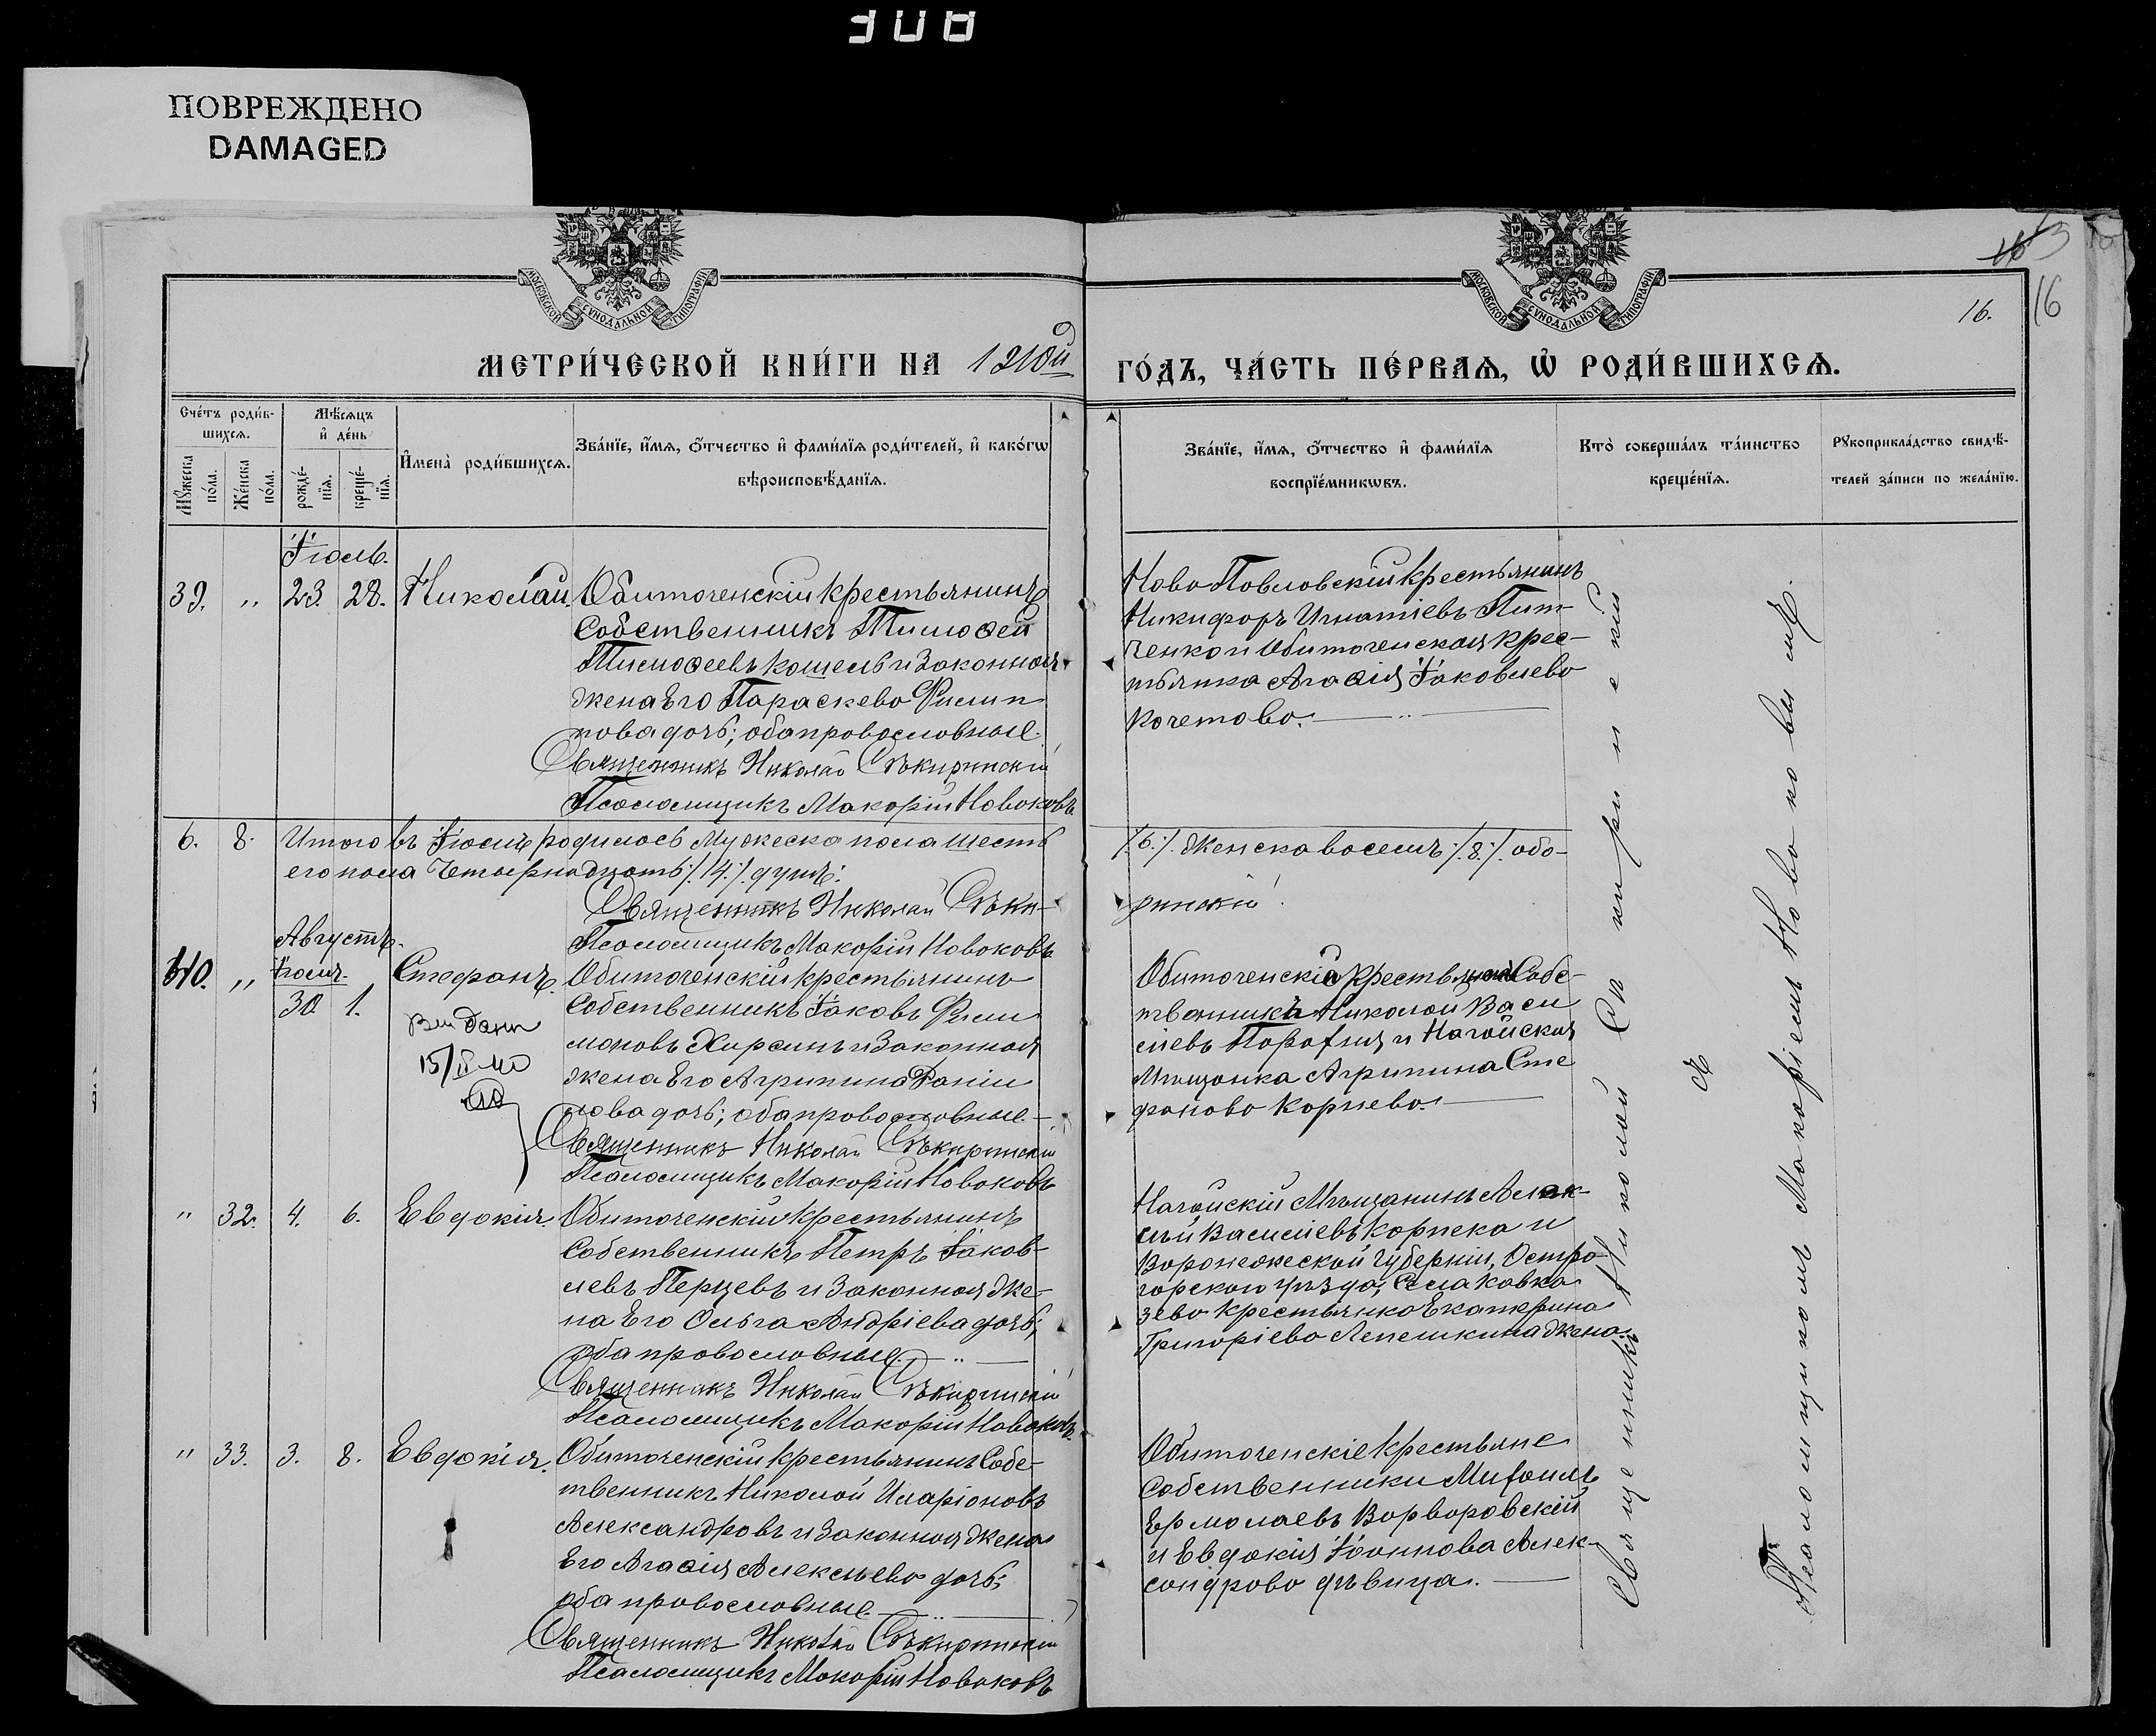 308
ПОВРЕЖДЕНО
DAMAGED
МОСКОВСКОЙ СѴНОДАЛЬНОЙ ТИПОГРАФІИ
МОСКОВСКОЙ СѴНОДАЛЬНОЙ ТИПОГРАФІИ
13
16
16.
МЕТРИ́ЧЕСКОЙ КНИ́ГИ НА
ГО́ДЪ, ЧА́СТЬ ПЕ́РВАѦ, Ѡ҆ РОДИ́ВШИХСѦ.
Сче́тъ роди́в-
шихсѧ.
Мꙋ́жеска
по́ла.
Же́нска
по́ла.
Мѣ́сѧцъ
и҆ де́нь
рожде́-
нїѧ.
креще́-
нїѧ.
И҆мена̀ роди́вшихсѧ.
Зва́нїе, и҆́мѧ, ѻ҆́тчество и҆ фами́лїѧ роди́телей, и҆ како́гѡ
вѣроисповѣ́данїѧ.
Зва́нїе, и҆́мѧ, ѻ҆́тчество и҆ фами́лїѧ
воспрїе́мникѡвъ.
Кто̀ соверша́лъ та́инство
креще́нїѧ.
Рꙋкоприкла́дство свидѣ́-
телей за́писи по жела́нїю.
Іюль.
39. " 23. 28. Николай. Обиточенскій крестьянинъ
Собственникъ Тимоѳей
Тимоѳеевъ Кошель и Законная
жена Его Параскева Филип
пова дочь; оба православные.
Священникъ Николай Сѣкиринскій
Псаломщикъ Макарій Новаковъ
Ново Павловскій крестьянинъ
Никифоръ Игнатіевъ Пит-
ченко и Обиточенская крес-
тьянка Агаѳія Іаковлева
Кочетова.
6. 8. Итого въ Іюлѣ родилось мужеска пола шесть
/:6:/ женска восемь /:8:/ обо-
его пола Четырнадцать /:14:/ душъ.
Священникъ Николай Сѣки-
ринскій
Псаломщикъ Макарій Новаковъ
Августъ.
40. " Іюль 30 1. Стефанъ. Обиточенскій крестьянинъ
Собственникъ Іаковъ Фили
моновъ Хирсинъ и Законная
жена Его Агрипина Даніи
лова дочь; оба православные.
Священникъ Николай Сѣкиринскій
Псаломщикъ Макарій Новаковъ
Обиточенскій крестьянинъ Собс-
твенникъ Николай Васи
ліевъ и Нагайская
Мѣщанка Агрипина Сте
фанова Корнева.
" 32. 4. 6. Евдокія. Обиточенскій крестьянинъ
Собственникъ Петръ Іаков-
левъ Перцевъ и Законная же-
на Его Ольга Андріева дочь;
оба православные.
Священникъ Николай Сѣкиринскій
Псаломщикъ Макарій Новаковъ
Нагайскій Мѣщанинъ Алек-
сѣй Василіевъ Корнека и
Воронежской Губерніи, Остро-
горскаго уѣзда, Села Кавка
зево крестьянка Екатерина
Григоріева Лепешкина жена.
" 33. 3. 8. Евдокія. Обиточенскій крестьянинъ Собс-
твенникъ Николай Иларіоновъ
Александровъ и Законная жена
Его Агаѳія Алексѣева дочь;
оба православные.
Священникъ Николай Сѣкиринскій
Псаломщикъ Макарій Новаковъ
Обиточенскіе крестьяне
Собственники Михаилъ
Ермолаевъ Варваровскій
и Евдокія Іоаннова Алек-
сандрова дѣвица.
Священникъ Николай Сѣкиринскій
съ
Псаломщикомъ Макаріемъ Новаковымъ.